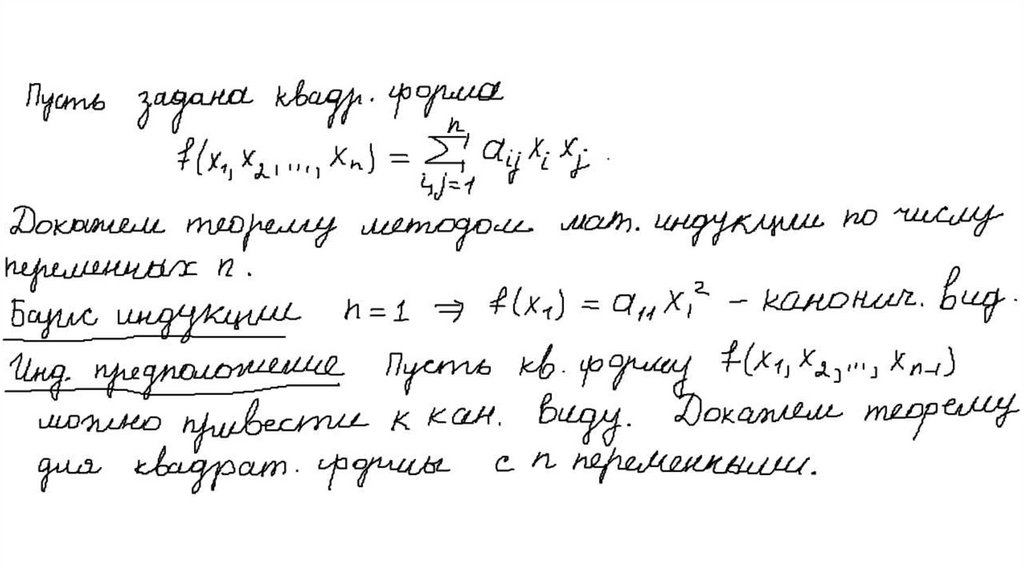 Пусть задана квадр. форма
f(x₁, x₂, ..., xₙ) = ∑ⁿᵢ,ⱼ₌₁ aᵢⱼ xᵢ xⱼ.
Докажем теорему методом мат. индукции по числу
переменных n.
Базис индукции n = 1 ⇒ f(x₁) = a₁₁ x₁² – канонич. вид.
Инд. предположение Пусть кв. форму f(x₁, x₂, ..., xₙ₋₁)
можно привести к кан. виду. Докажем теорему
для квадрат. формы с n переменными.